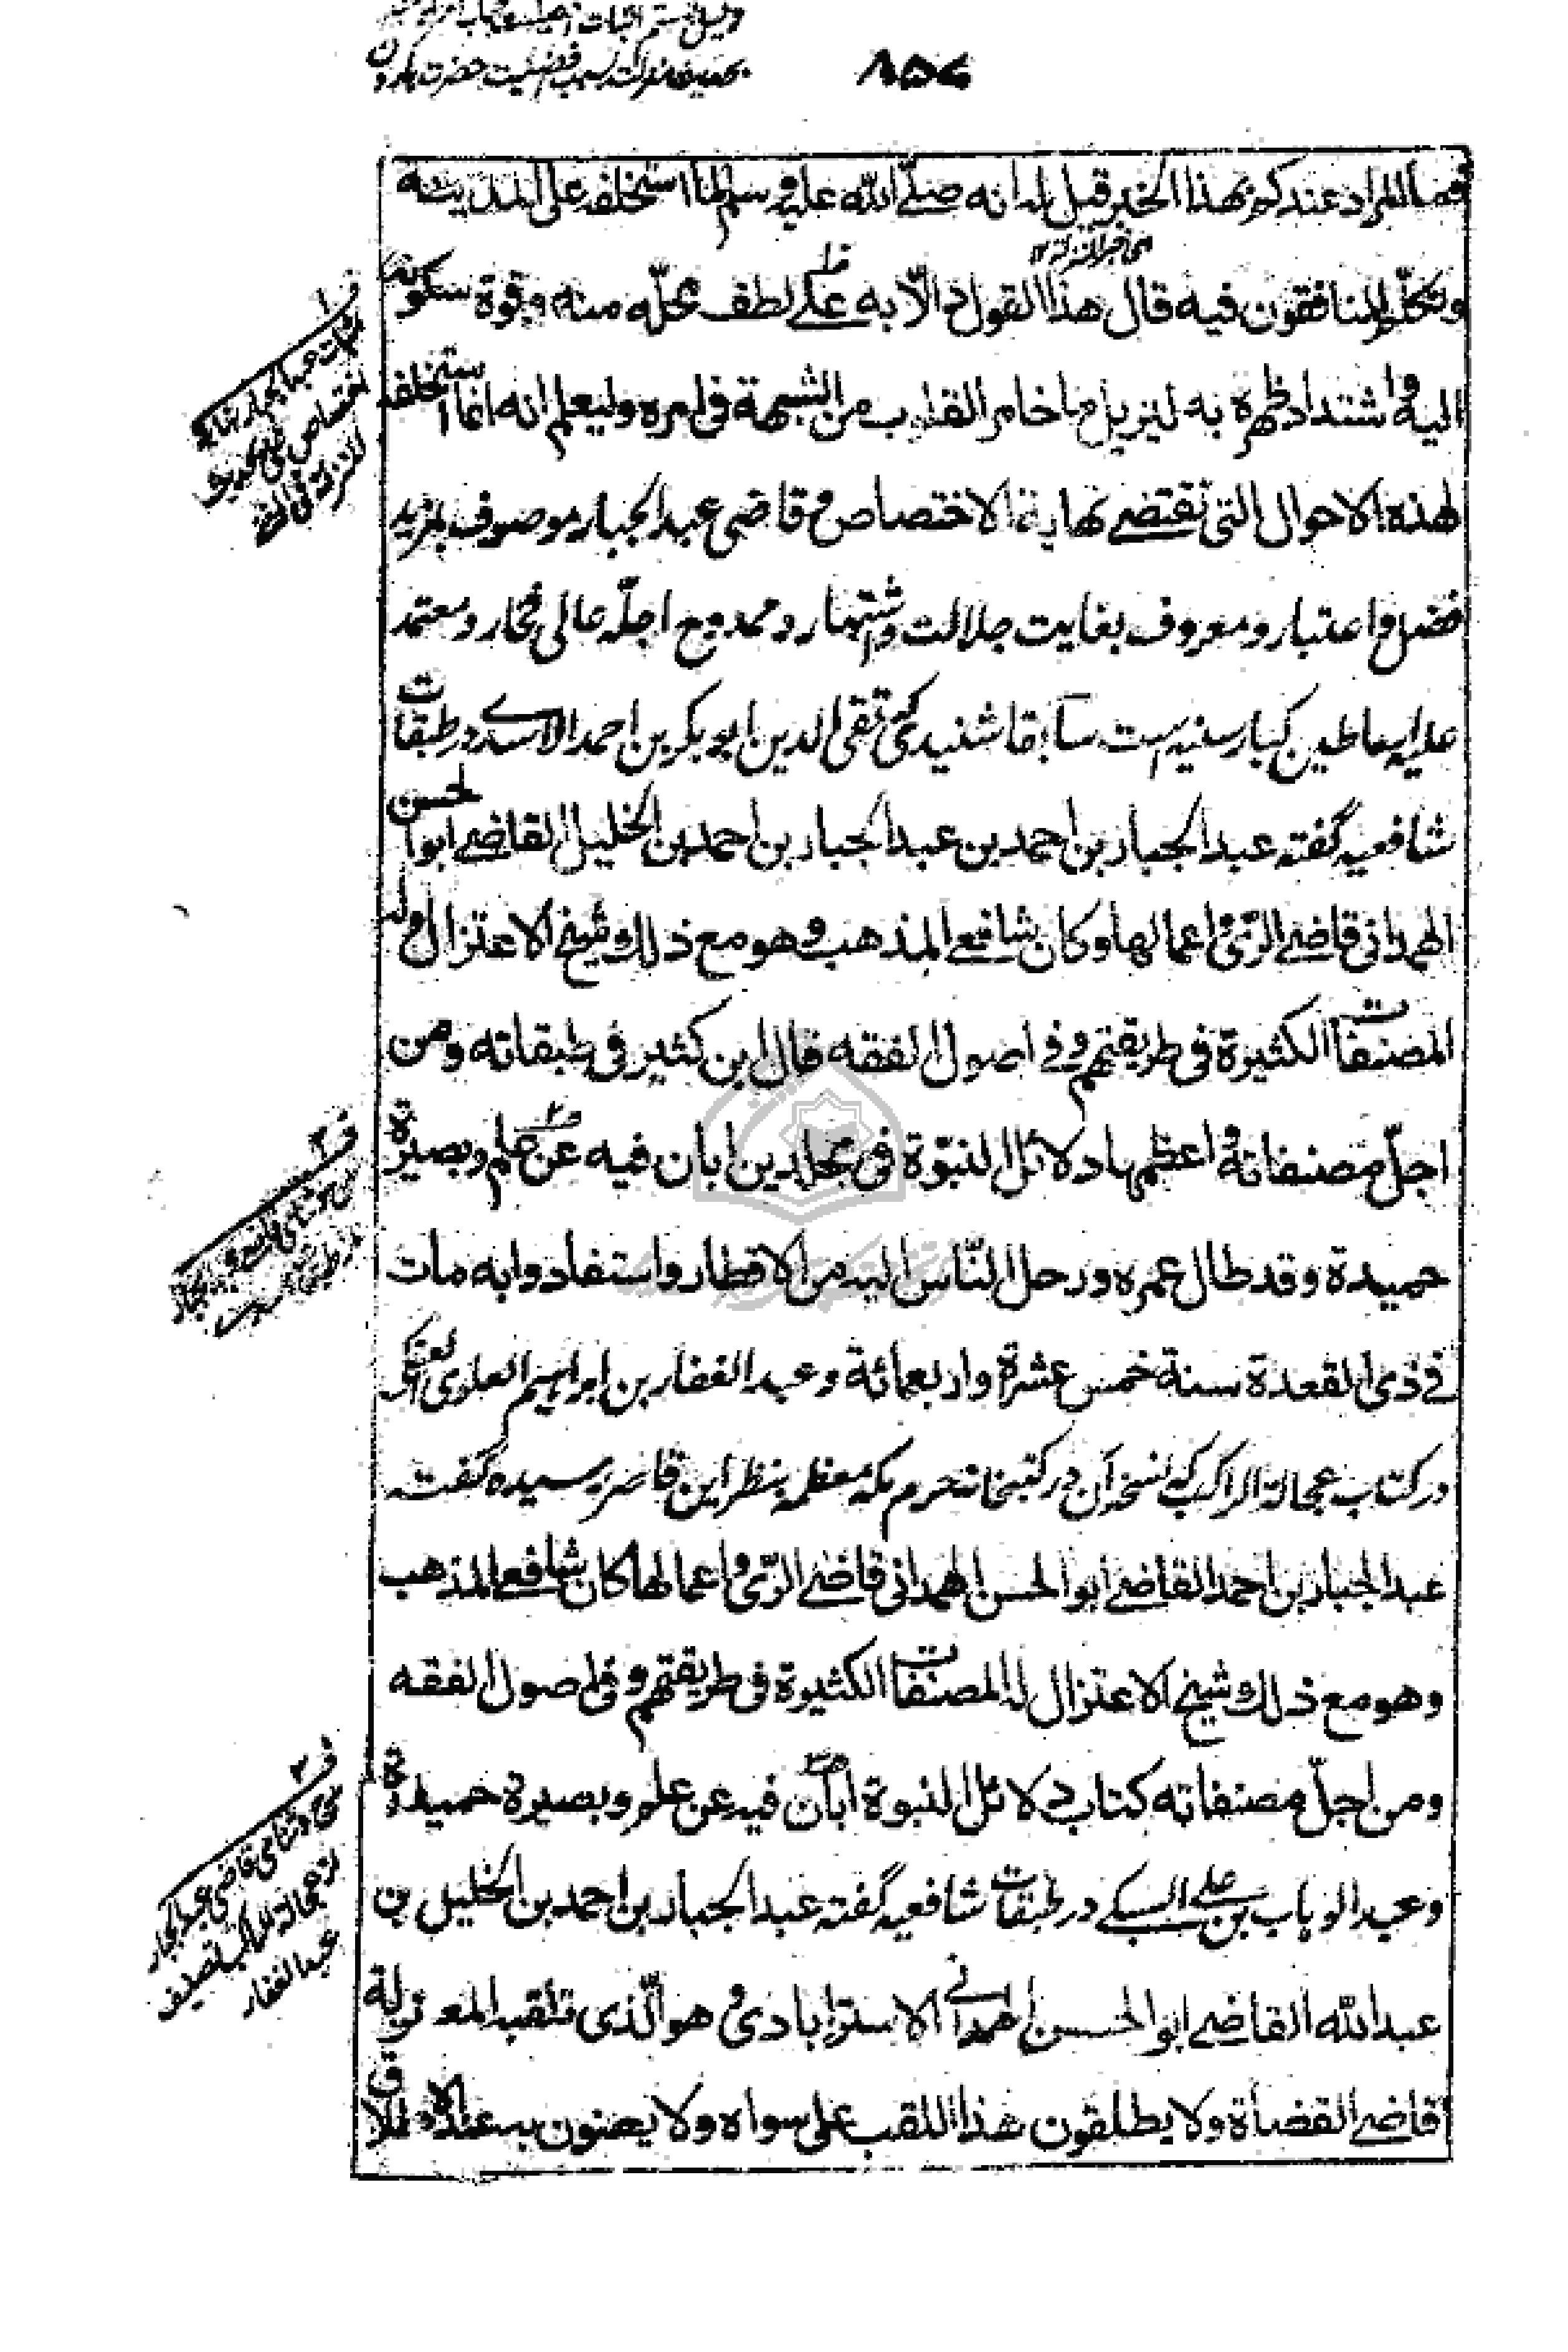 ۸۵۷
فما المراد عندكم بهذا الخبر قيل له انه صلى الله عليه وسلم لما استخلفه على المدينة
وتكلم المنافقون فيه قال هذا القول دالا به على لطف محله منه وقوة سكونه
اليه واشتداد ظهره به ليزيل ما خامر القلوب من الشبهة في امره وليعلم انه انما استخلفه
لهذه الاحوال التي تقتضي نهاية الاختصاص و قاضی عبد الجبار موصوف بمزید
فضل و اعتبار و معروف بغایت جلالت و اشتهار و ممدوح اجلّه عالی فخار و معتمد
علیه اساطین کبار سنیه است سابقا شنیدی که تقی الدین ابو بکر بن احمد الاسدی در طبقات
شافعیه گفته عبد الجبار بن احمد بن عبد الجبار بن احمد بن الخليل القاضي ابو الحسن
الهمداني قاضي الري واعمالها وكان شافعي المذهب وهو مع ذلك شيخ الاعتزال وله
المصنفات الكثيرة في طريقتهم وفي اصول الفقه قال ابن كثير في طبقاته ومن
اجلّ مصنفاته واعظمها دلائل النبوّة في مجلدين ابان فيه عن علم وبصيرة
حميدة وقد طال عمره ورحل الناس اليه من الاقطار واستفادوا به مات
في ذي القعدة سنة خمس عشرة واربعمائة و عبد الغفار بن ابراهیم العلوی العکی
در کتاب عجالة الراکب که نسخه آن در کتبخانه حرم مکه معظمه بنظر این قاصر رسیده گفته
عبد الجبار بن احمد القاضي ابو الحسن الهمداني قاضي الري واعمالها كان شافعي المذهب
وهو مع ذلك شيخ الاعتزال له المصنفات الكثيرة في طريقتهم وفي اصول الفقه
ومن اجلّ مصنفاته كتاب دلائل النبوة ابان فيه عن علم وبصيرة حميدة
و عبد الوهاب بن علی السبکی در طبقات شافعیه گفته عبد الجبار بن احمد بن الخليل بن
عبد الله القاضي ابو الحسن الهمداني الاسترابادي وهو الّذي تلقبه المعتزلة
قاضي القضاة ولا يطلقون هذا اللقب على سواه ولا يعنون به عند الاطلاق
ف۳
مدح و ثنای قاضی عبد الجبار
از عجالة الراکب تصنیف
عبد الغفار